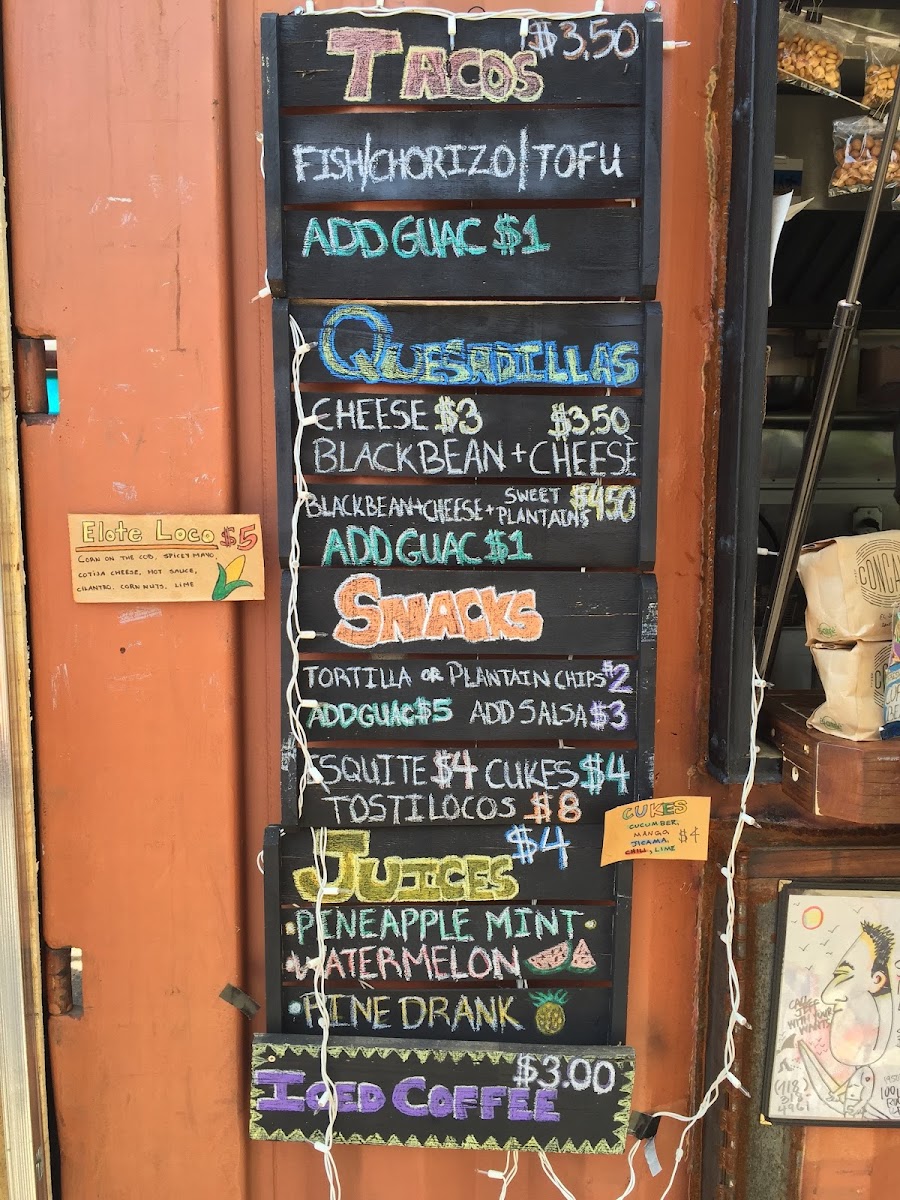 TACOS $3.50
FISH/CHORIZO/TOFU
ADD GUAC $1
QUESADILLAS
CHEESE $3 $3.50
BLACKBEAN + CHEESE
BLACKBEAN+CHEESE+ SWEET PLANTAINS $4.50
ADD GUAC $1
SNACKS
TORTILLA OR PLANTAIN CHIPS $2
ADD GUAC $5 ADD SALSA $3
ESQUITE $4 CUKES $4
TOSTILOCOS $8
JUICES $4
PINEAPPLE MINT
WATERMELON
PINE DRANK
ICED COFFEE $3.00
Elote Loco $5
CORN ON THE COB, SPICEY MAYO,
COTIJA CHEESE, HOT SAUCE,
CILANTRO, CORN NUTS, LIME
CUKES
CUCUMBER,
MANGO
JICAMA, $4
CHILI, LIME